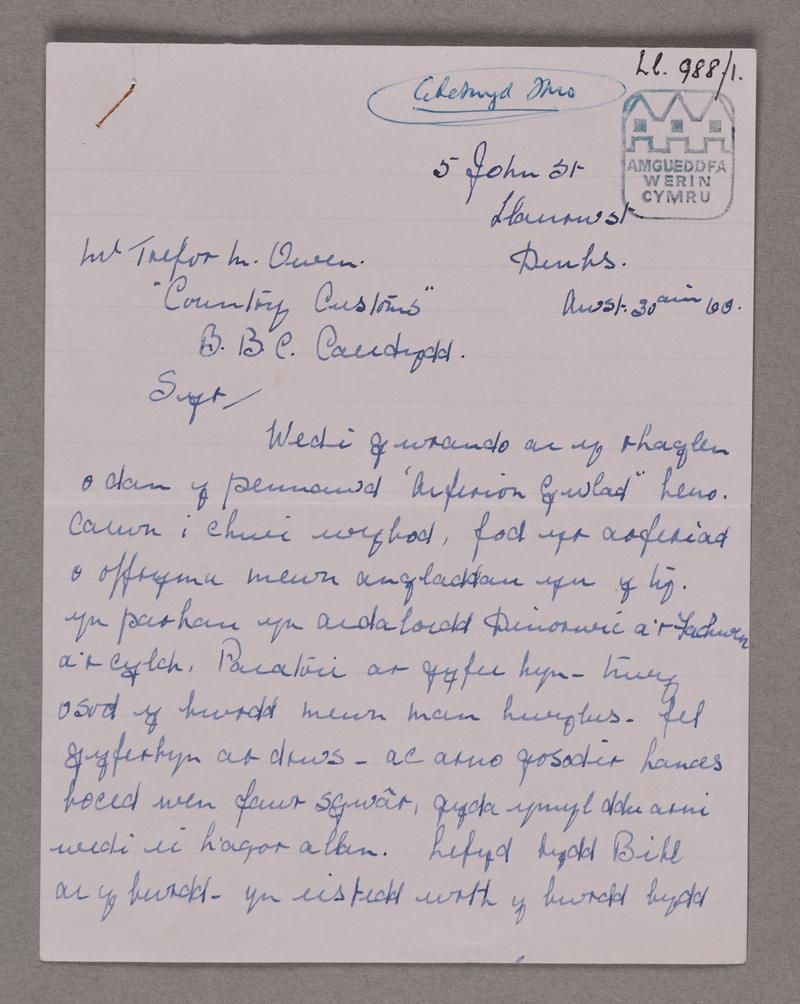 Ll. 988/1.
AMGUEDDFA
WERIN
CYMRU
5 John St
Llanrwst
Denbs.
Mr Trefor M. Owen.
"Country Customs"
Awst. 30ain
B.B.C. Caerdydd.
Syr/
Wedi gwrando ar y rhaglen
o dan y pennawd "Arferion Gwlad" heno.
Carwn i chwi wybod, fod yr arferiad
o offrymu mewn angladdau yn y tŷ.
yn parhau yn ardaloedd Dinorwic a'r Fachwen
a'r cylch. Paratoir ar gyfer hyn - trwy
osod y bwrdd mewn man hwylus - fel
gyferbyn a'r drws - ac arno gosodir hances
boced wen fawr sgwâr, gyda ymyl ddu arni
wedi ei hagor allan. Hefyd bydd Bibl
ar y bwrdd - yn eistedd wrth y bwrdd bydd